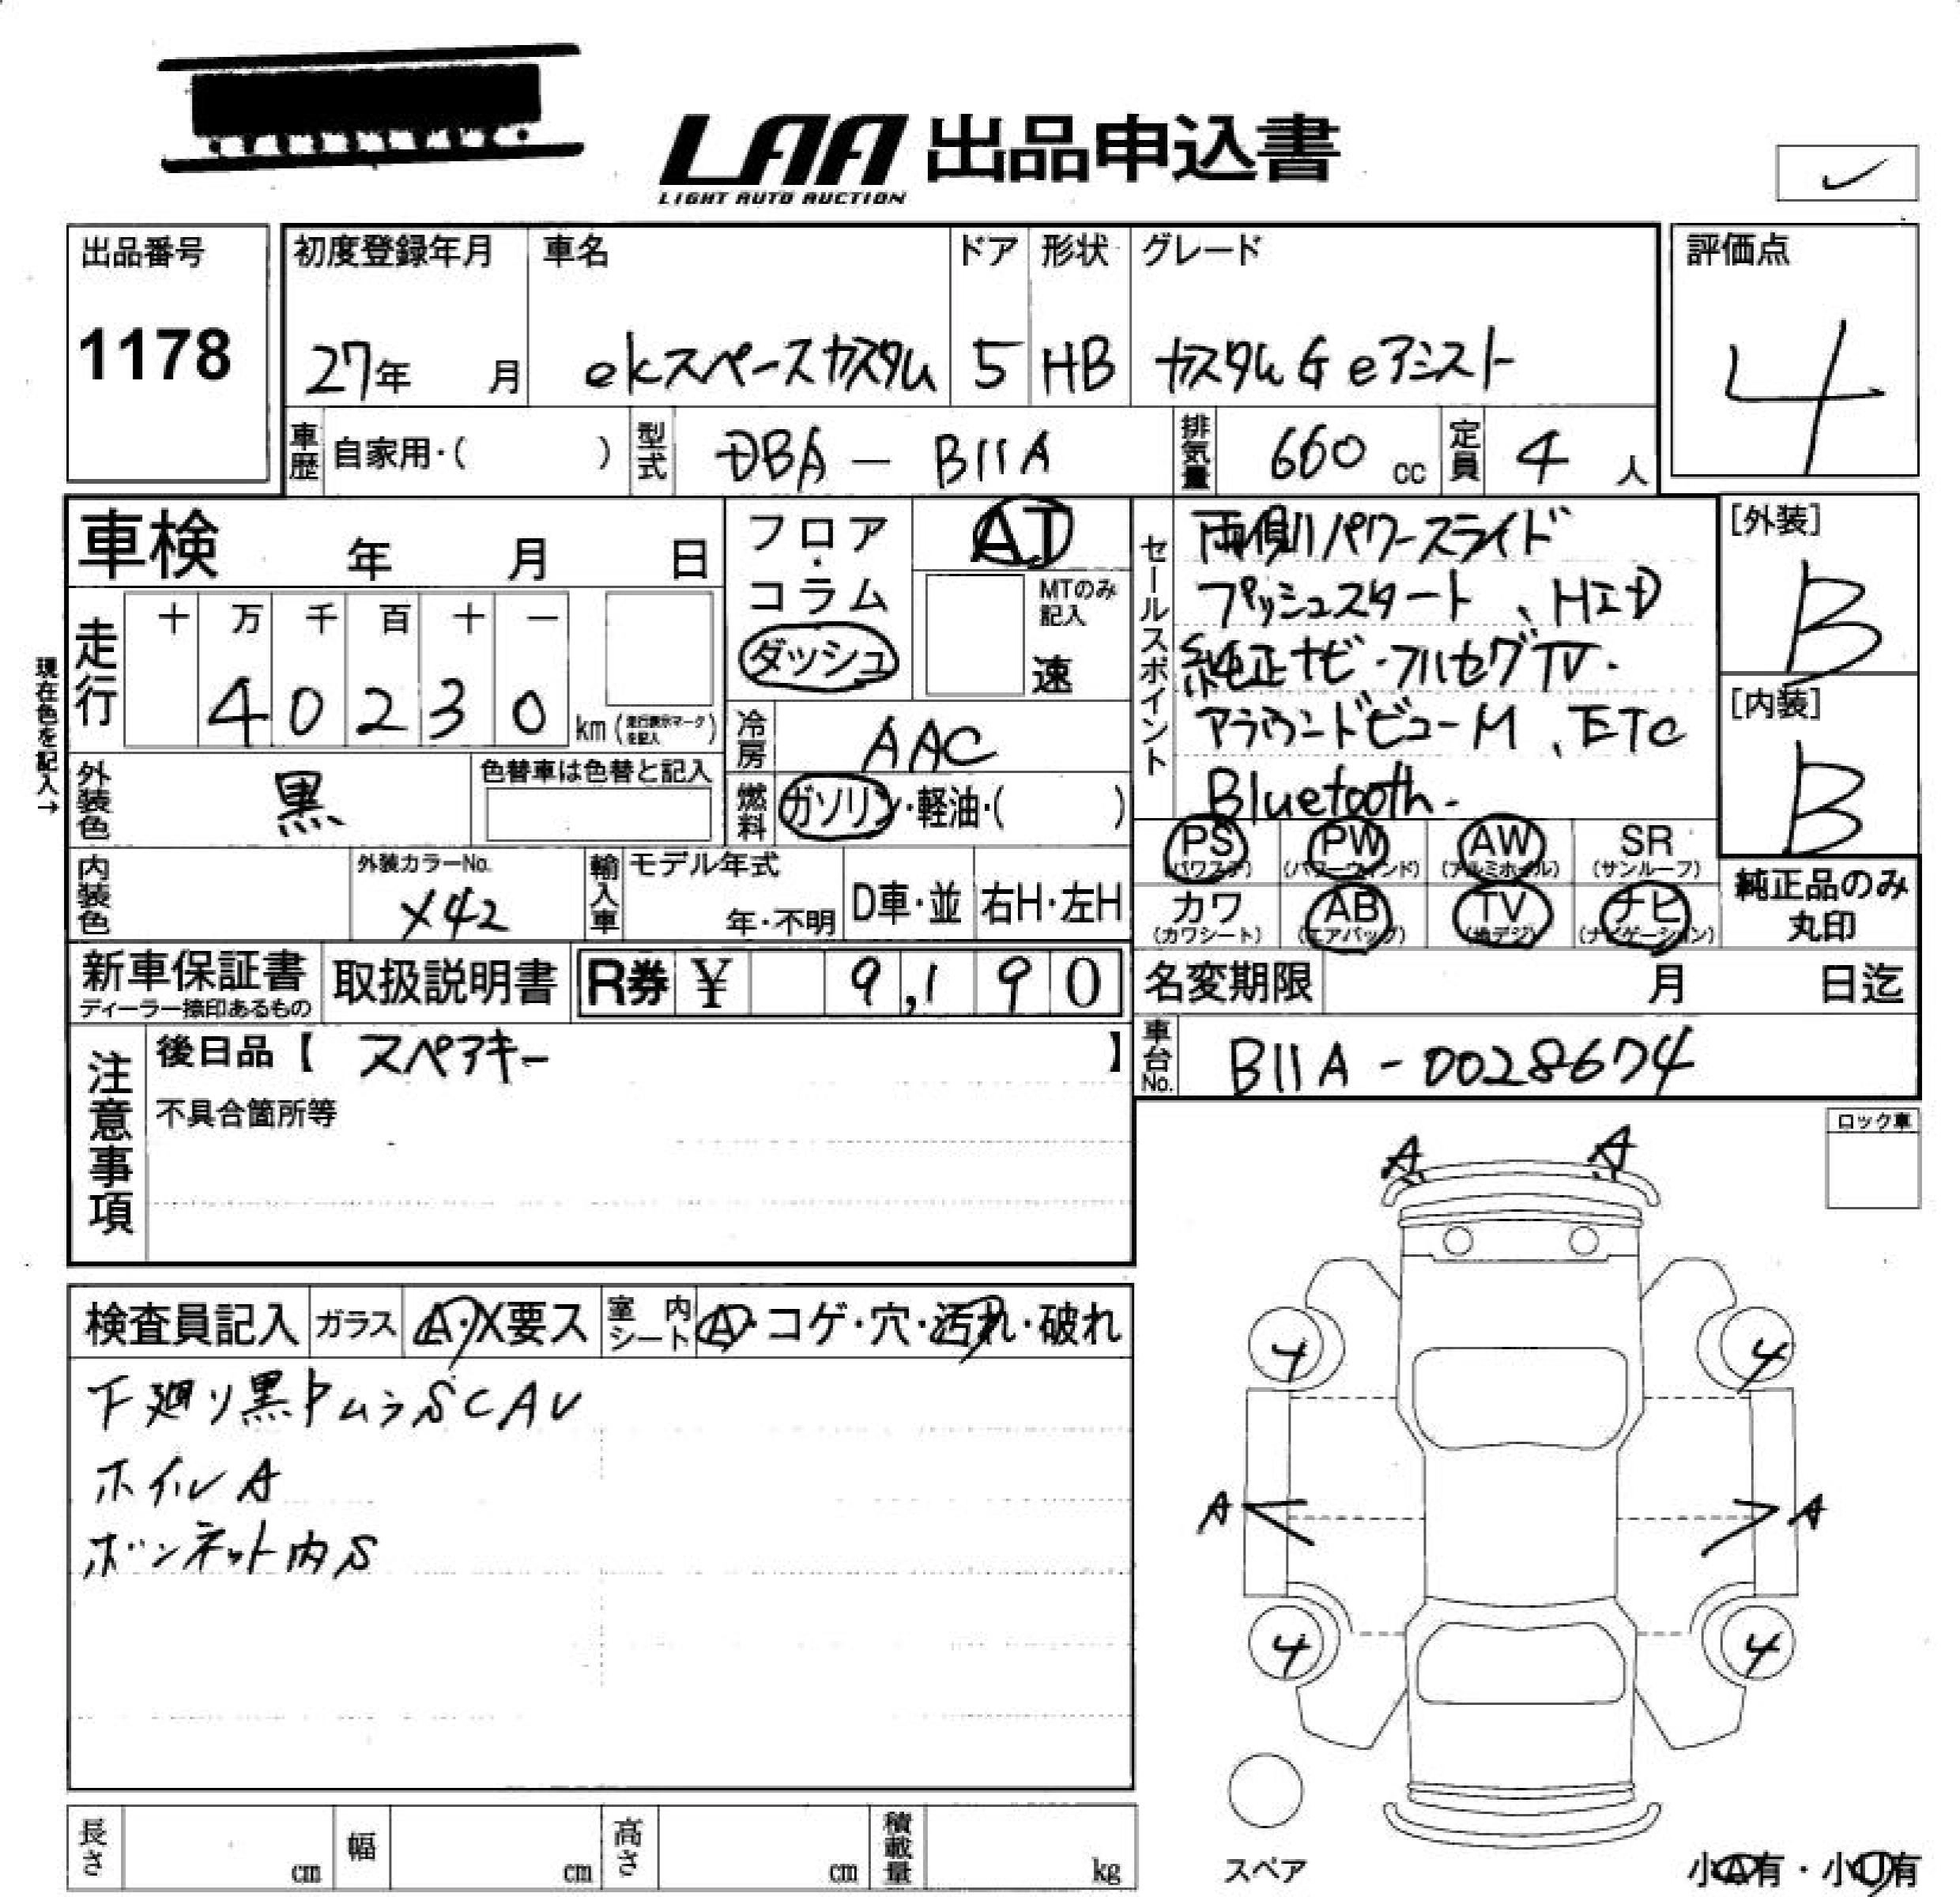 LAA 出品申込書
LIGHT AUTO AUCTION
出品番号
1178
初度登録年月
27年 月
車名
ekスペースカスタム
ドア
5
形状
HB
グレード
カスタムG eアシスト
評価点
4
車歴 自家用・( )
型式 DBA - B11A
排気量 660 cc
定員 4 人
車検 年 月 日
フロア・コラム
ダッシュ
AT
MTのみ記入
速
セールスポイント
両側パワースライド
プッシュスタート、HID
純正ナビ・フルセグTV・
アラウンドビューM、ETC
Bluetooth
[外装]
B
[内装]
B
現在色を記入→
走行 十 万 千 百 十 一
4 0 2 3 0 km (走行表示マークを記入)
冷房 AAC
外装色 黒
色替車は色替と記入
燃料 ガソリン・軽油・( )
PS (パワステ) PW (パワーウィンド) AW (アルミホイル) SR (サンルーフ)
カワ (カワシート) AB (エアバッグ) TV (地デジ) ナビ (ナビゲーション)
純正品のみ
丸印
内装色
外装カラーNo.
X42
輸入車 モデル年式
年・不明
D車・並 右H・左H
新車保証書
ディーラー捺印あるもの
取扱説明書
R券 ¥ 9,190
名変期限 月 日迄
車台No. B11A - 0028674
注意事項
後日品【 スペアキー 】
不具合箇所等
ロック車
A A
検査員記入 ガラス A・X要ス 室内シート A・コゲ・穴・汚れ・破れ
下廻り黒トムラSCAU
ホイルA
ボンネット内S
4 4
A A
4 4
スペア
小A有・小U有
長さ cm 幅 cm 高さ cm 積載量 kg